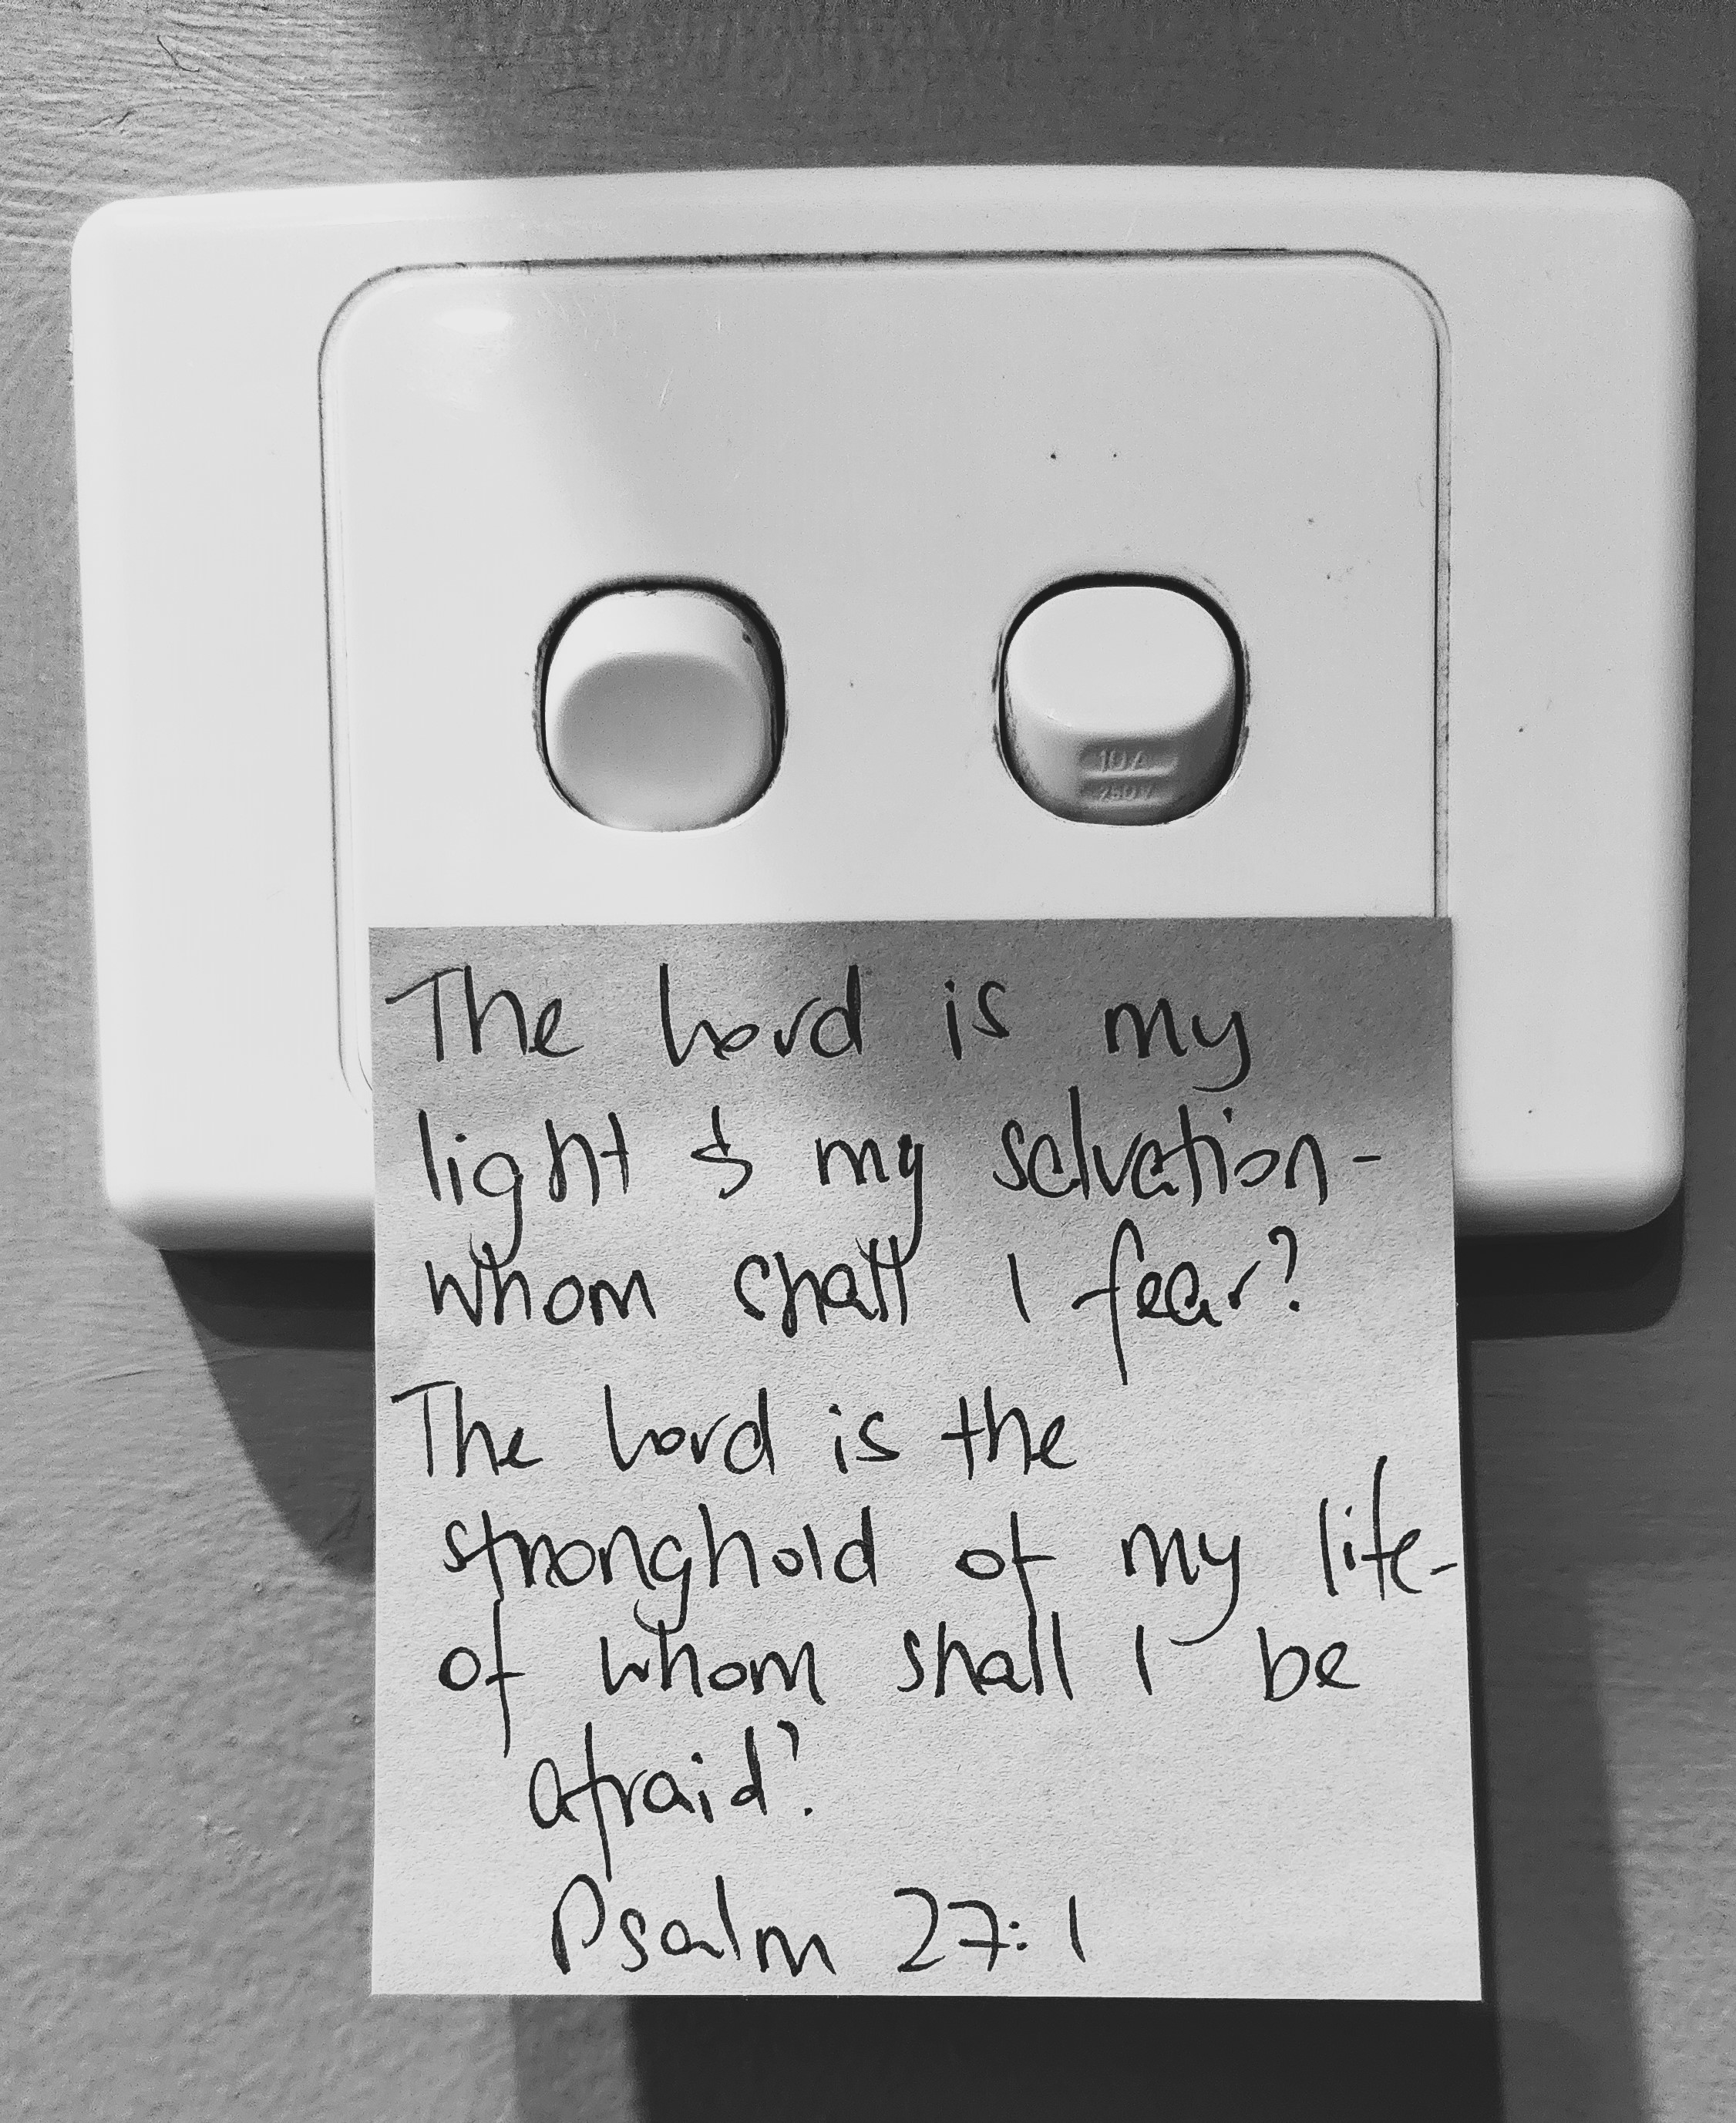 10A
250V
The Lord is my
light & my salvation-
whom shall I fear?
The Lord is the
stronghold of my life-
of whom shall I be
afraid?
Psalm 27:1